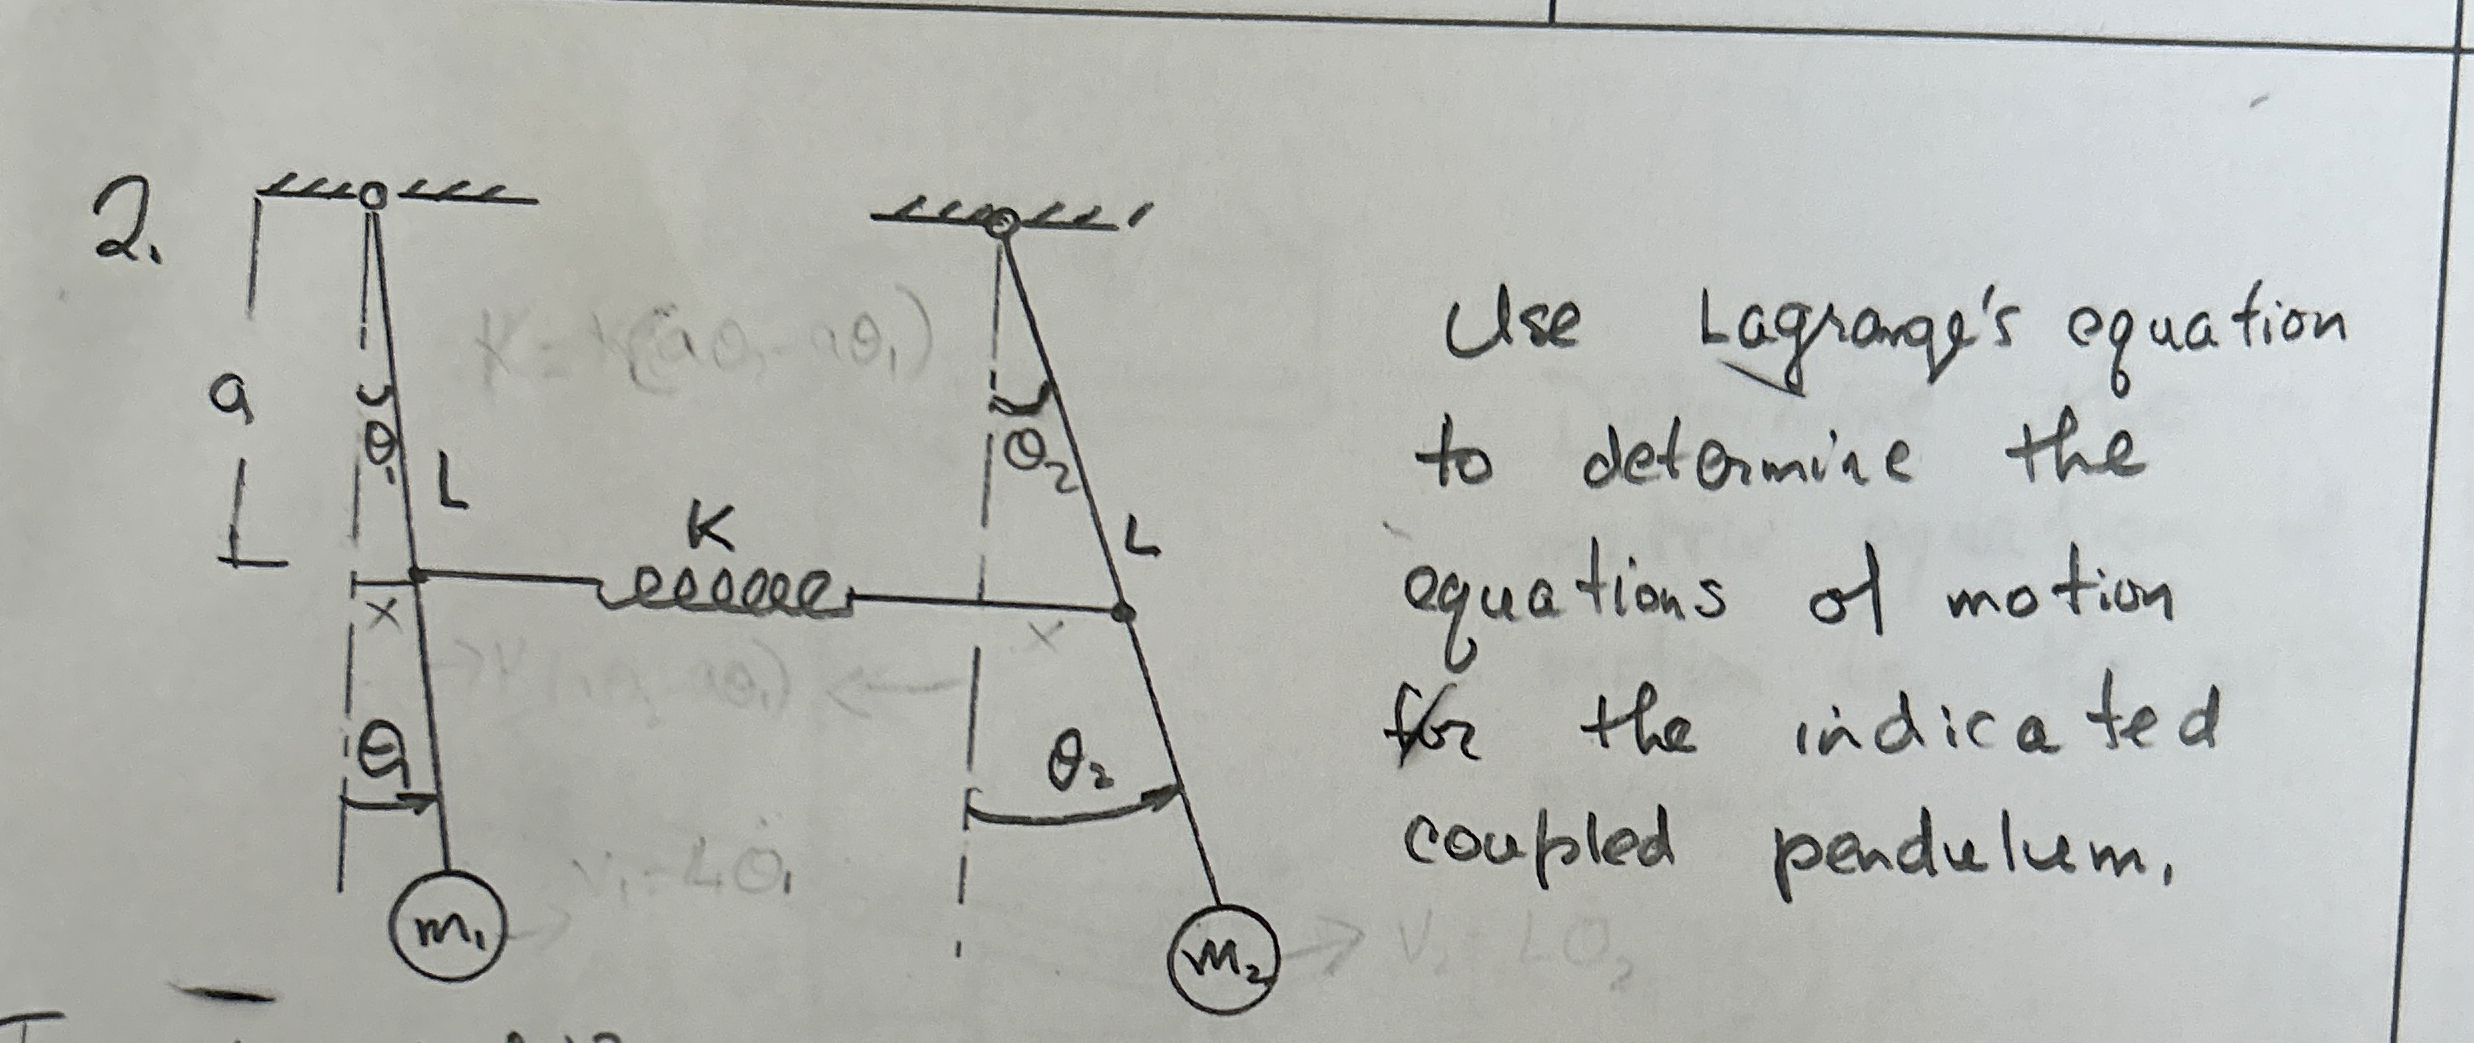 2.
a
θ₁
L
K
θ₂
L
x
x
θ₁
θ₂
m₁
m₂
V₁ = Lθ̇₁
V₂ = Lθ̇₂
Use Lagrange's equation
to determine the
equations of motion
for the indicated
coupled pendulum.